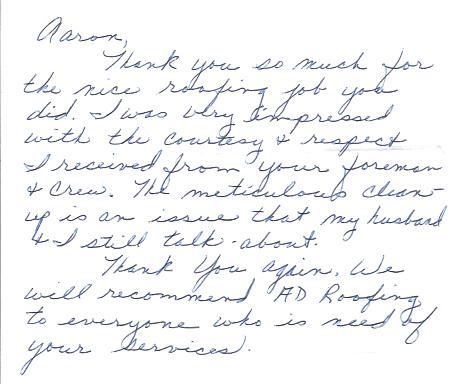 Aaron,
Thank you so much for
the nice roofing job you
did. I was very impressed
with the courtesy & respect
I received from your foreman
& crew. The meticulous clean-
up is an issue that my husband
& I still talk about.
Thank You again. We
will recommend AD Roofing
to everyone who is need of
your services.